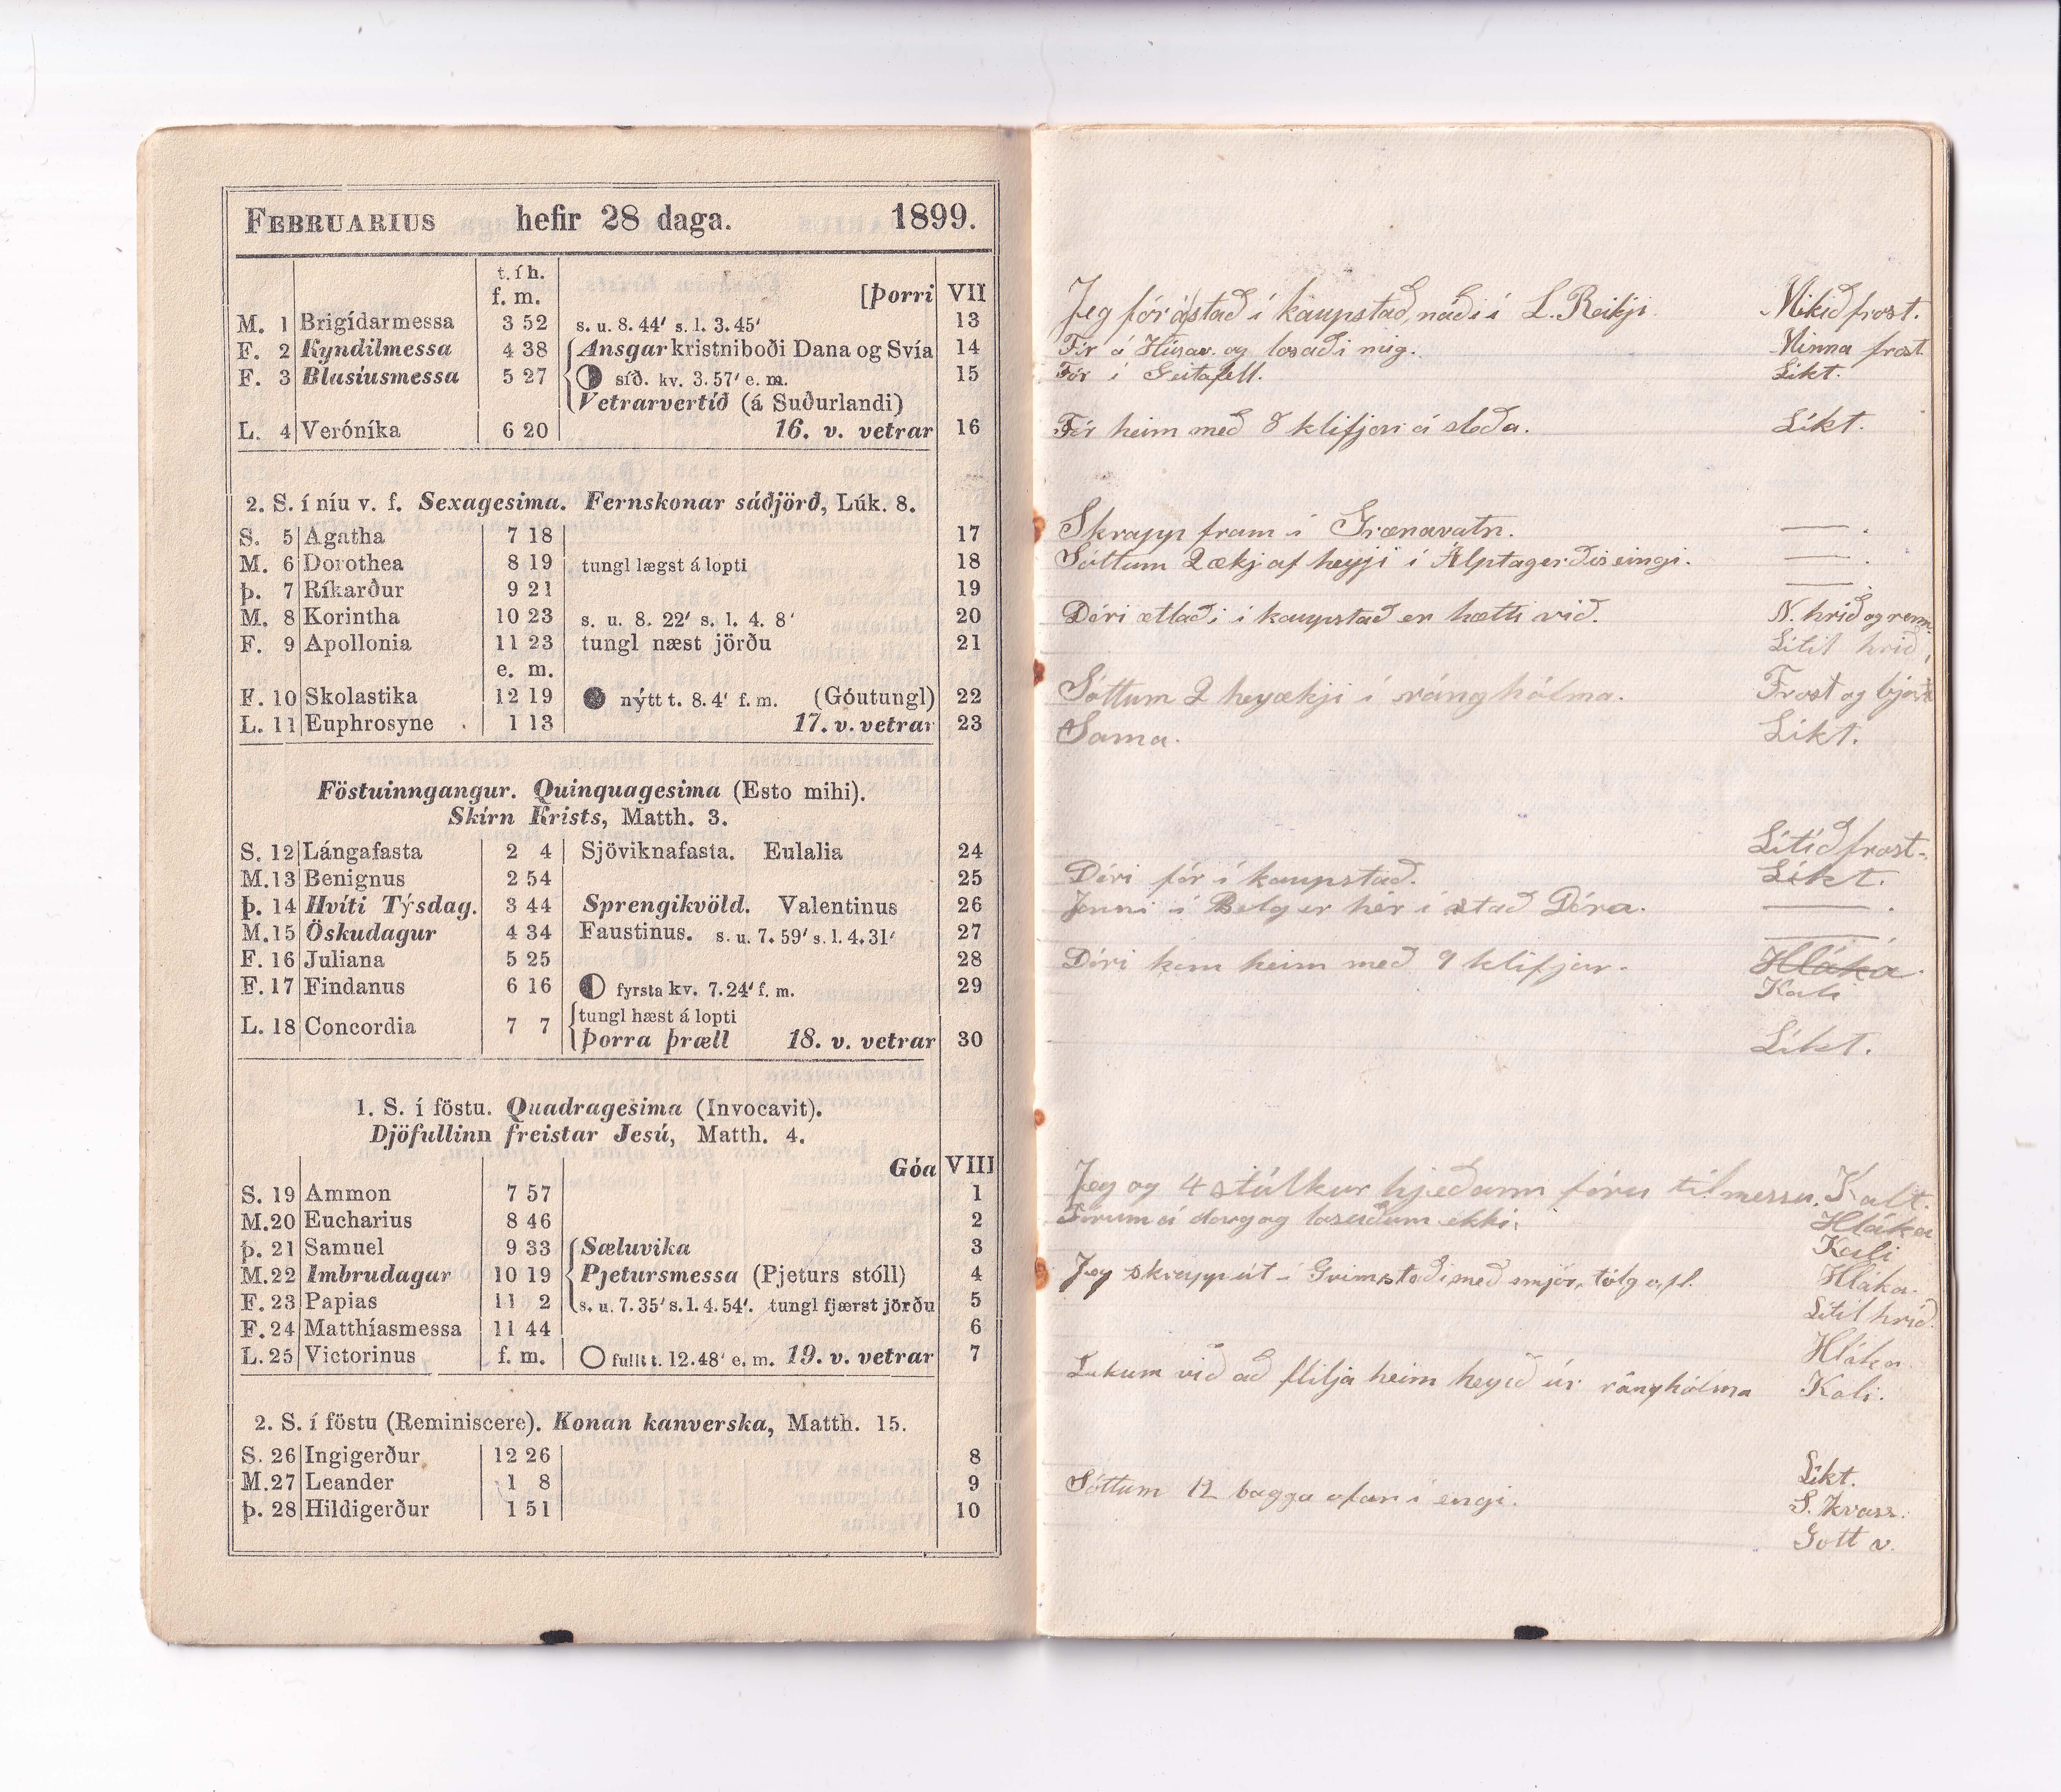 FEBRUARIUS hefir 28 daga. 1899.
t. í h.
f. m. [Þorri VII
M. 1 Brigídarmessa 3 52 s. u. 8. 44′ s. l. 3. 45′ 13
F. 2 Kyndilmessa 4 38 Ansgar kristniboði Dana og Svía 14
F. 3 Blasíusmessa 5 27 síð. kv. 3. 57′ e. m. 15
Vetrarvertíð (á Suðurlandi)
L. 4 Verónika 6 20 16. v. vetrar 16
2. S. í níu v. f. Sexagesima. Fernskonar sáðjörð, Lúk. 8.
S. 5 Agatha 7 18 17
M. 6 Dorothea 8 19 tungl lægst á lopti 18
Þ. 7 Ríkarður 9 21 19
M. 8 Korintha 10 23 s. u. 8. 22′ s. l. 4. 8′ 20
F. 9 Apollonia 11 23 tungl næst jörðu 21
e. m.
F. 10 Skolastika 12 19 nýtt t. 8. 4′ f. m. (Góutungl) 22
L. 11 Euphrosyne 1 13 17. v. vetrar 23
Föstuinngangur. Quinquagesima (Esto mihi).
Skírn Krists, Matth. 3.
S. 12 Lángafasta 2 4 Sjöviknafasta. Eulalia 24
M. 13 Benignus 2 54 25
Þ. 14 Hvíti Týsdag. 3 44 Sprengikvöld. Valentinus 26
M. 15 Öskudagur 4 34 Faustinus. s. u. 7. 59′ s. l. 4. 31′ 27
F. 16 Juliana 5 25 28
F. 17 Findanus 6 16 fyrsta kv. 7. 24′ f. m. 29
tungl hæst á lopti
L. 18 Concordia 7 7 Þorra þræll 18. v. vetrar 30
1. S. í föstu. Quadragesima (Invocavit).
Djöfullinn freistar Jesú, Matth. 4.
Góa VIII
S. 19 Ammon 7 57 1
M. 20 Eucharius 8 46 2
Þ. 21 Samuel 9 33 Sæluvika 3
M. 22 Imbrudagar 10 19 Pjetursmessa (Pjeturs stóll) 4
F. 23 Papias 11 2 s. u. 7. 35′ s. l. 4. 54′. tungl fjærst jörðu 5
F. 24 Matthíasmessa 11 44 6
L. 25 Victorinus f. m. fullt t. 12. 48′ e. m. 19. v. vetrar 7
2. S. í föstu (Reminiscere). Konan kanverska, Matth. 15.
S. 26 Ingigerður 12 26 8
M. 27 Leander 1 8 9
Þ. 28 Hildigerður 1 51 10
Jeg fór á stað í kaupstað, náði í L. Reikji. Mikið frost.
Fór á Húsav. og losaði mig. Minna frost
Fór í Geitafell. Líkt.
Fór heim með 8 klifjar á sleða. Líkt.
Skrapp fram í Grænavatn. —.
Sóttum 2 ækj af heyji í Álptagerðiseingi. —.
—
Dóri ætlaði í kaupstað er hætti við. N. hríð og renn.
Lítil hríð,
Sóttum 2 heyækji í ránghólma. Frost og bjart
Sama. Líkt.
Lítið frost.
Dóri fór í kaupstað. Líkt.
Jenni í Belg er hér í stað Dóra. —.
—
Dóri kom heim með 9 klifjar. Hláka.
Kali
Líkt.
Jeg og 4 stúlkur hjeðann fóru til messu. Kalt.
Fórum á dorg og losuðum ekki. Hláka
Kali
Jeg skrapp út í Grímstaði með smjör, tólg o.fl. Hláka.
Lítil hríð.
Hláka.
Lukum við að flilja heim heyið úr ránghólma Kali.
Líkt.
Sóttum 12 bagga ofan í engi. S. kvass.
Gott v.